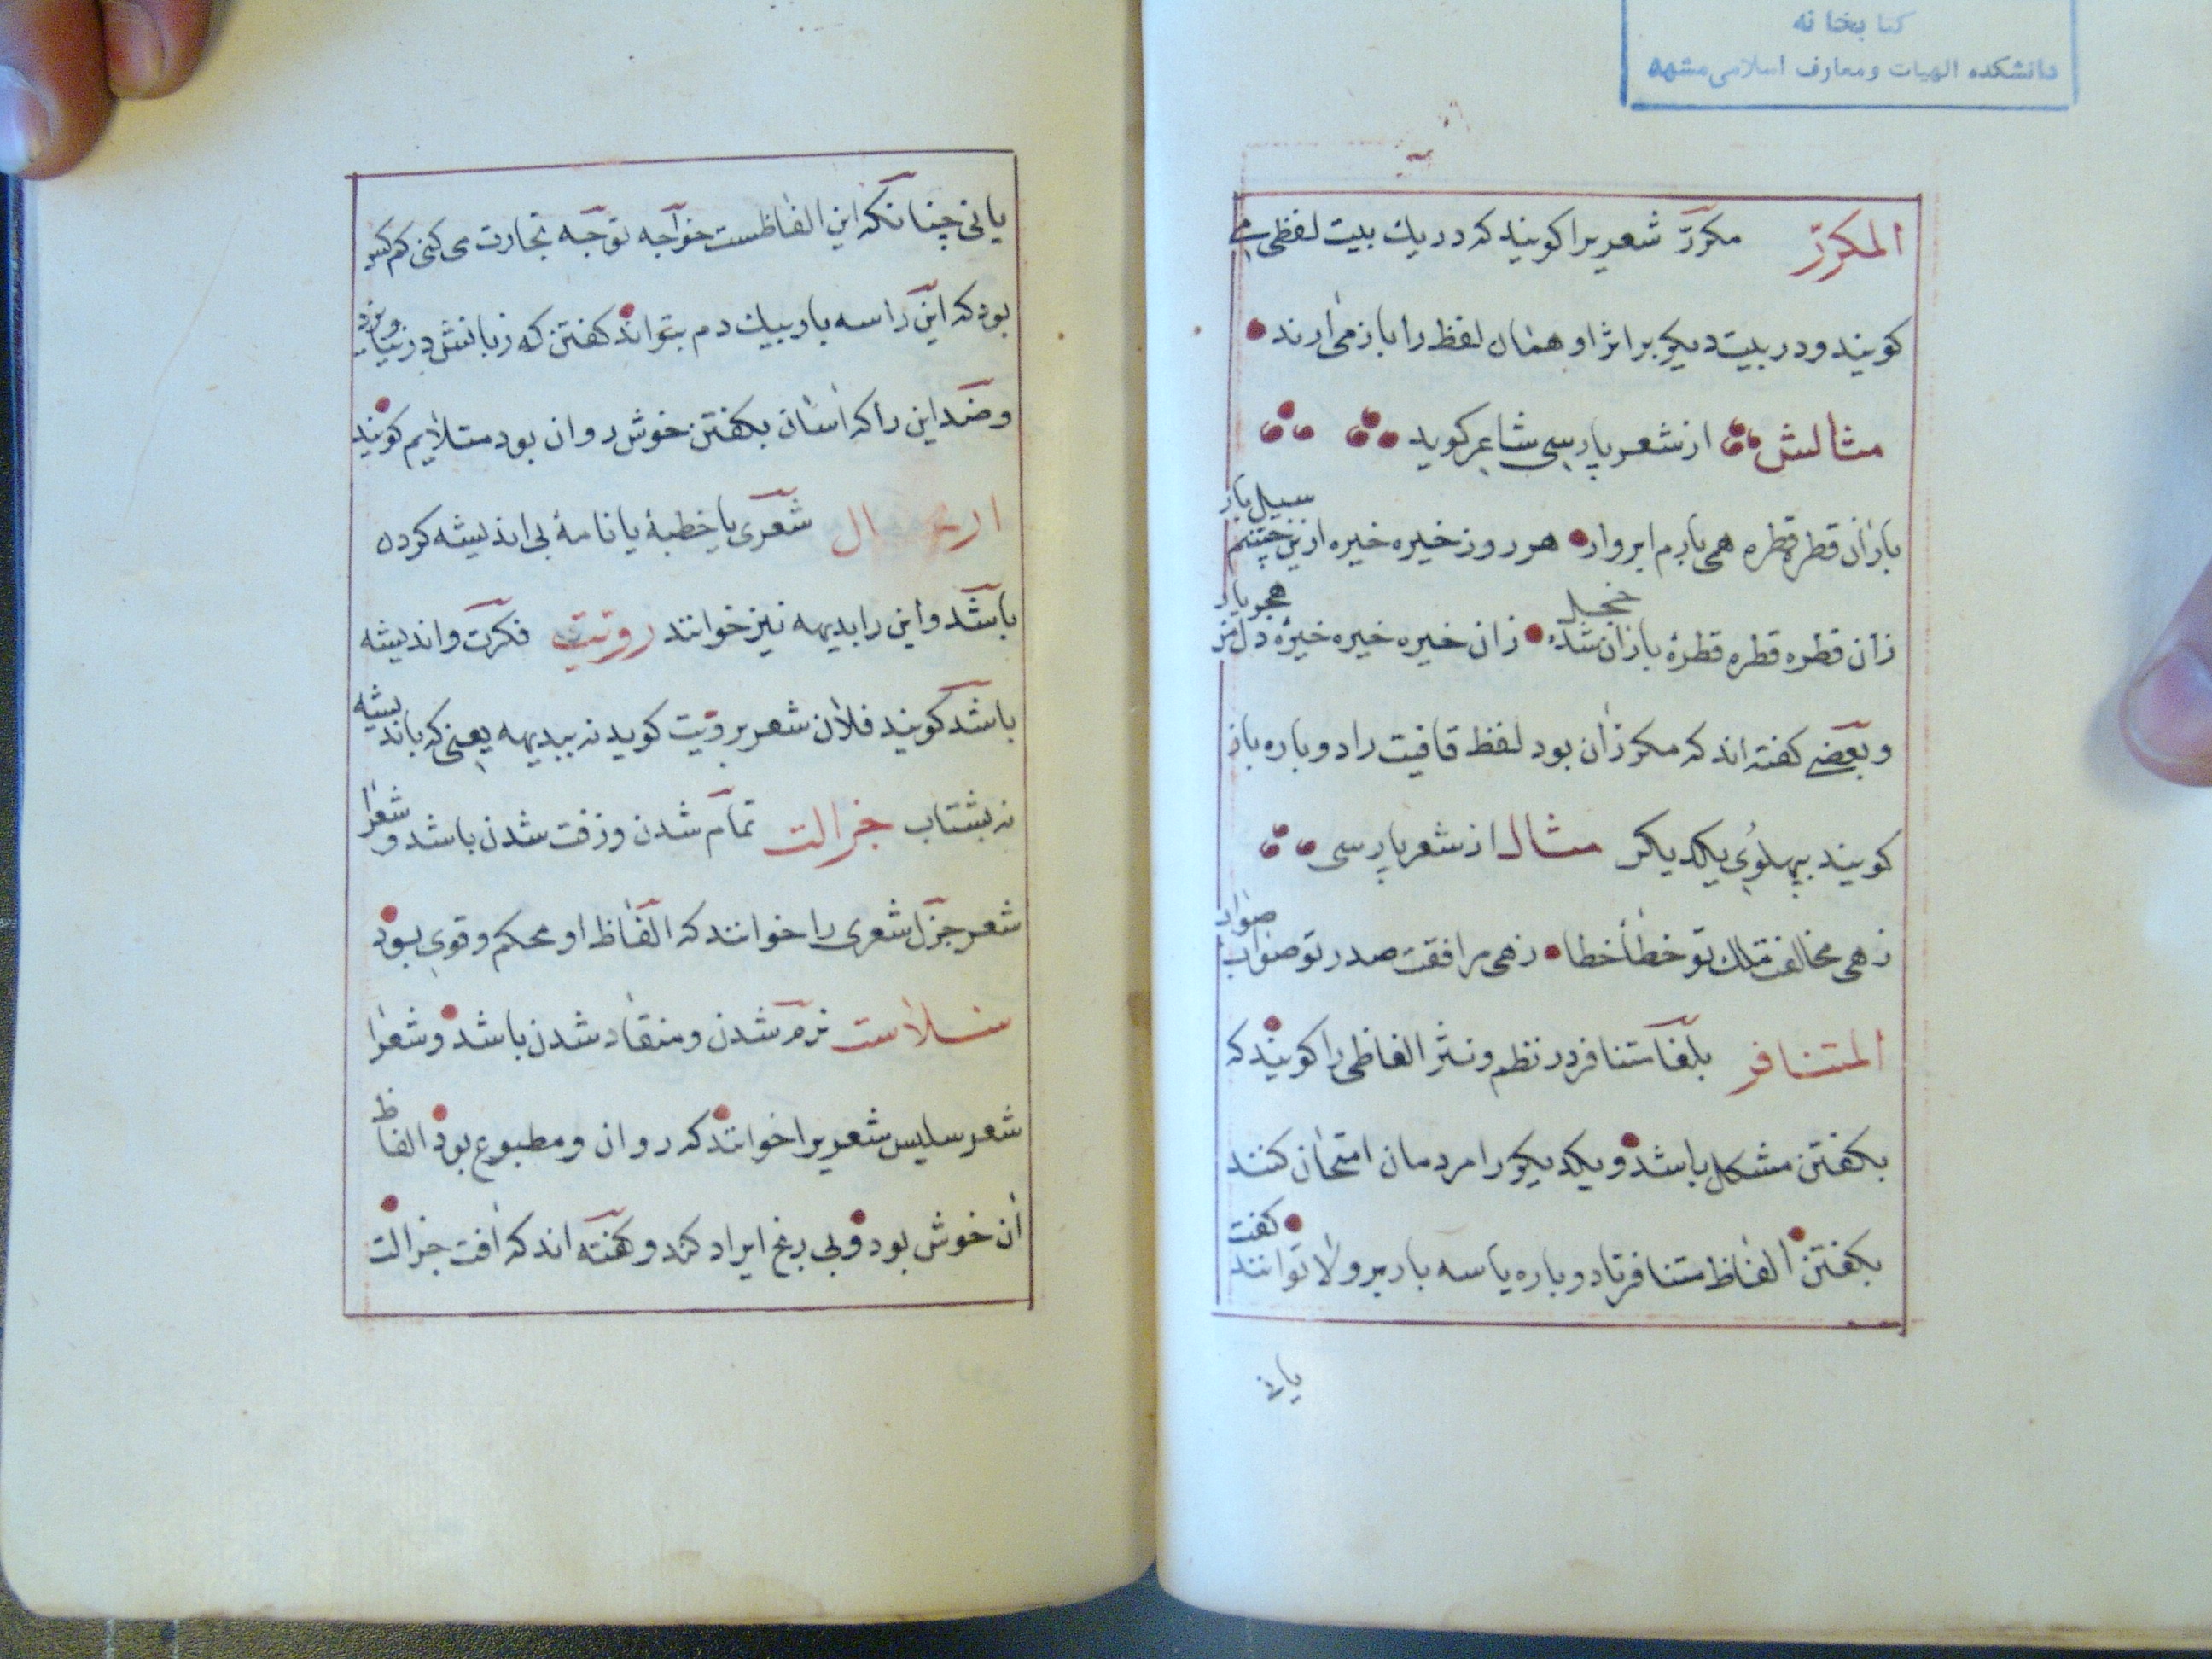 کتابخانه
دانشکده الهیات و معارف اسلامی مشهد
المکرّر مکرّر شعریرا کویند که در یك بیت لفظی می
کویند و در بیت دیکر بر اثر او همان لفظ را باز می ارند
مثالش از شعر پارسی شاعر کوید
باران قطره قطره همی بارم ابروار هر روز خیره خیره ازین چشم سیل بار
زان قطره قطره قطرهٔ باران شده خجل زان خیره خیره خیره دل من هجر یار
و بعضی کفته اند که مکرر ان بود لفظ قافیت را دو باره باز
کویند بپهلوی یکدیکر مثال از شعر پارسی
زهی مخالفت ملك تو خطا خطا زهی مرافقت صدر تو صواب صواب
المتنافر بلغا متنافر در نظم و نثر الفاظی را کویند که
بکفتن مشکل باشد و یکدیکر را مردمان امتحان کنند
بکفتن الفاظ متنافر تا دو باره یا سه بار بر ولا توانند کفت
یانی
یانی چنانکه این الفاظست خواجه تو چه تجارت می کنی کم کس
بود که این را سه بار بیك دم بتواند کفتن که زبانش در نیاویزد
و ضد این را که اسان بکفتن خوش روان بود متلایم کویند
ارتجال شعری یا خطبهٔ یا نامهٔ بی اندیشه کردن
باشد و این را بدیهه نیز خوانند رویّت فکرت و اندیشه
باشد کویند فلان شعر برویّت کوید نه ببدیهه یعنی که باندیشه
نه بشتاب جزالت تمام شدن و زفت شدن باشد و شعرا
شعر جزل شعری را خوانند که الفاظ او محکم و قوی بود
سلاست نرم شدن و منقاد شدن باشد و شعرا
شعر سلیس شعریرا خوانند که روان و مطبوع بود الفاظ
ان خوش بود و بی رنج ایراد کند و کفته اند که افت جزالت